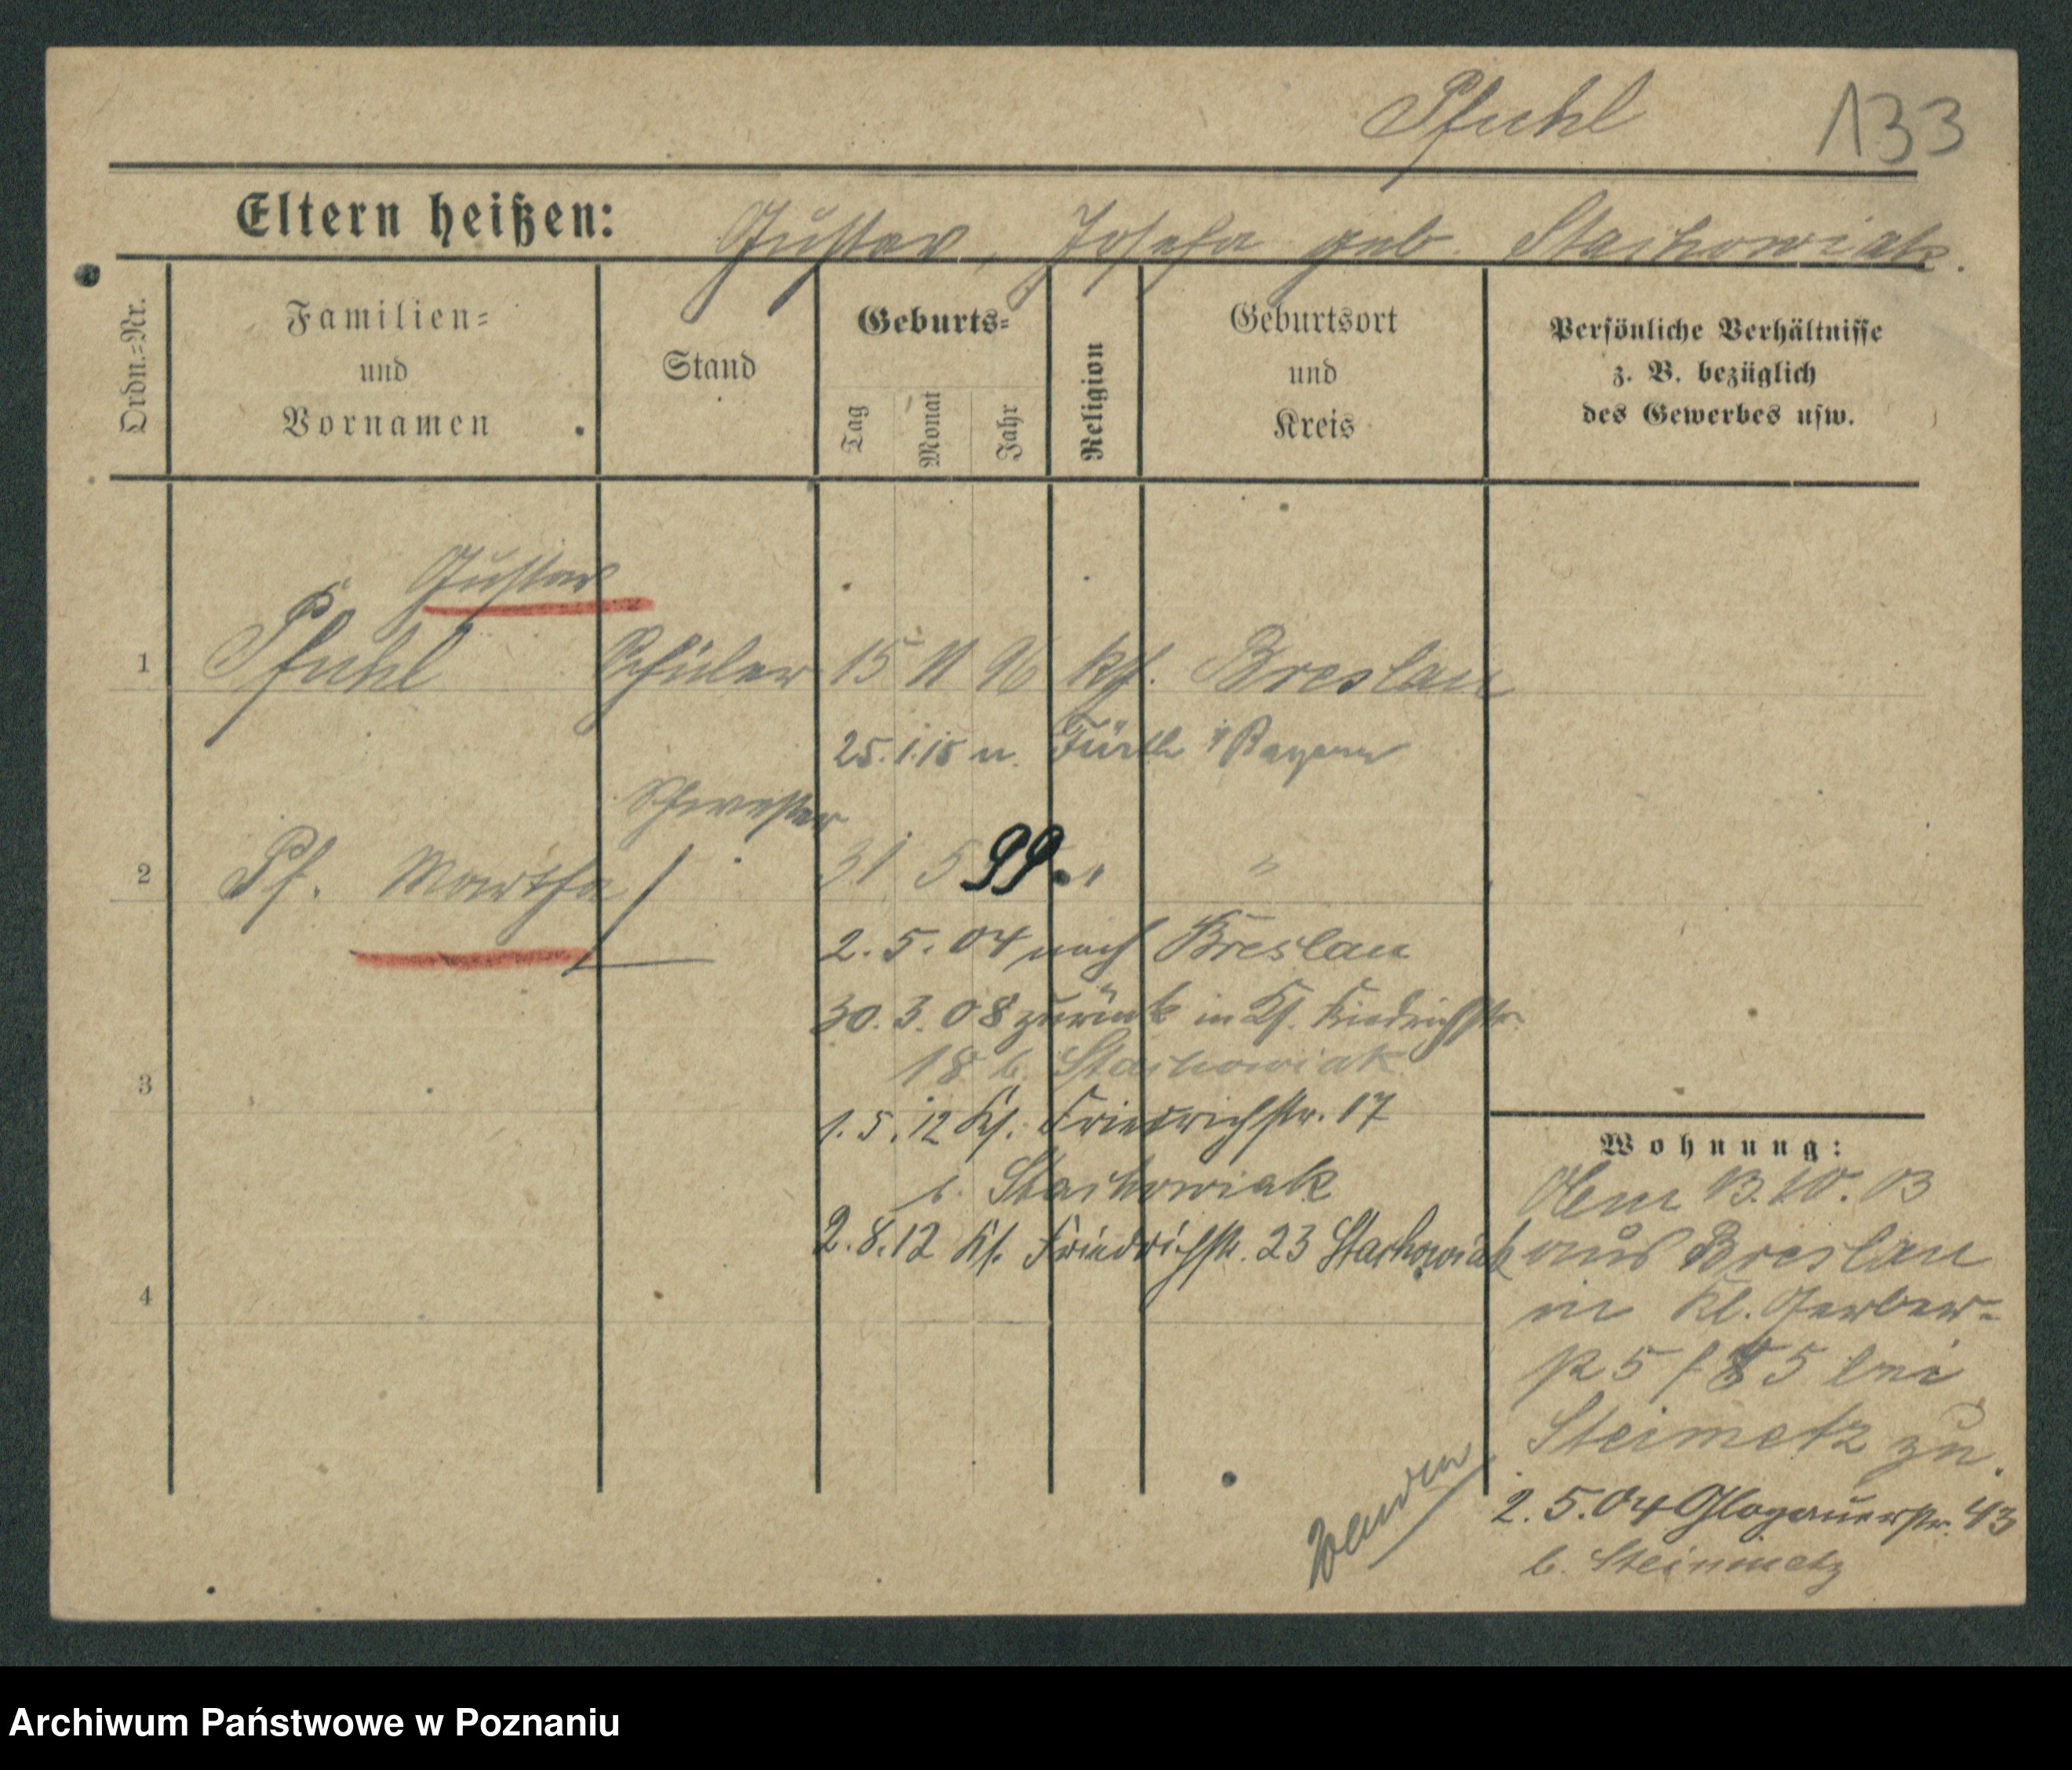 Pfuhl 133
Eltern heißen: Gustav, Josefa geb. Stachowiak.
Ordn.=Nr.
Familien=
und
Vornamen
Stand
Geburts=
Tag
Monat
Jahr
Religion
Geburtsort
und
Kreis
Persönliche Verhältnisse
z. B. bezüglich
des Gewerbes usw.
Gustav
1 Pfuhl Schüler 15 11 96 kt. Breslau
25.1.15 n. Fürth i/Bayern
Schwester
2 Pf. Martha 31 5 99 " "
2.5.04 nach Breslau
30.3.08 zurück in Friedrichstr.
18 b. Stachowiak
3
1.5.12 Friedrichstr. 17
b. Stachowiak
2.8.12 Friedrichstr. 23 Stachowiak
4
Wohnung:
13.10.03
aus Breslau
in Kl. Gerber-
5 bei
Steimetz zu.
2.5.04 Glogauerstr. 43
b. Steinmetz
wenden
Archiwum Państwowe w Poznaniu